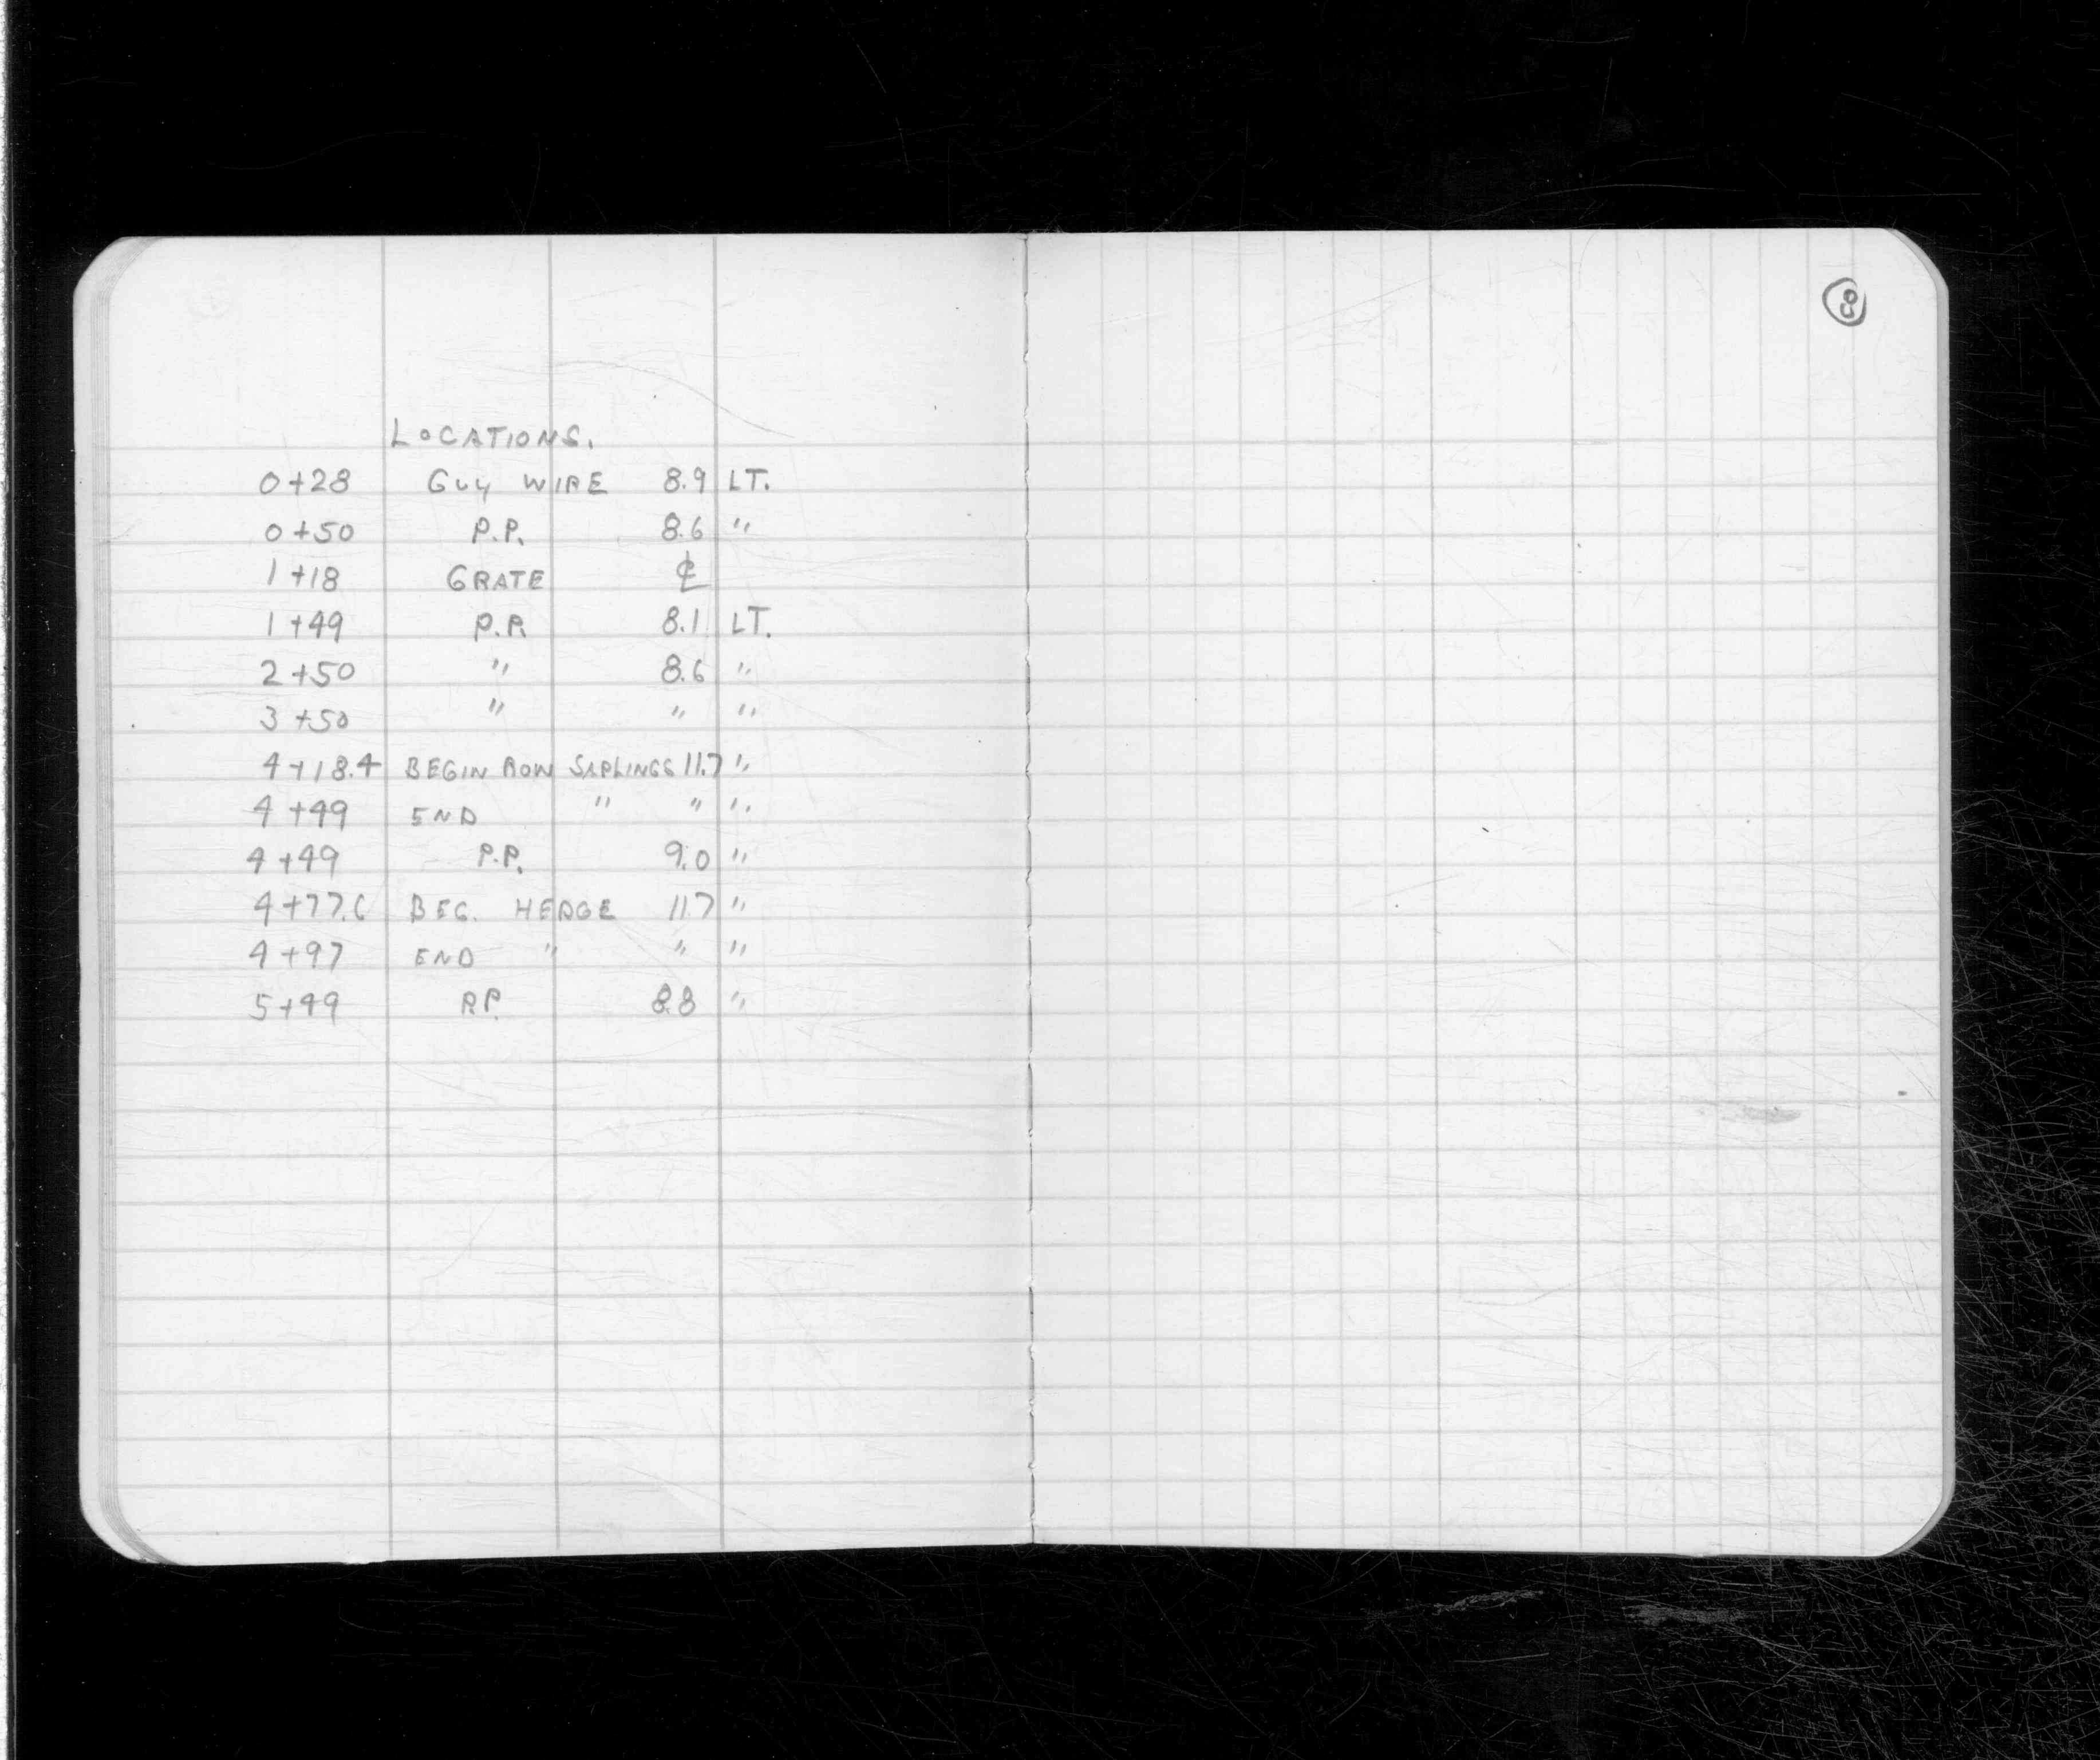 8
LOCATIONS.
0+28 GUY WIRE 8.9 LT.
0+50 P.P. 8.6 "
1+18 GRATE ℄
1+49 P.P. 8.1 LT.
2+50 " 8.6 "
3+50 " " "
4+18.4 BEGIN ROW SAPLINGS 11.7 "
4+49 END " " "
4+49 P.P. 9.0 "
4+77.6 BEG. HEDGE 11.7 "
4+97 END " " "
5+49 P.P. 8.8 "